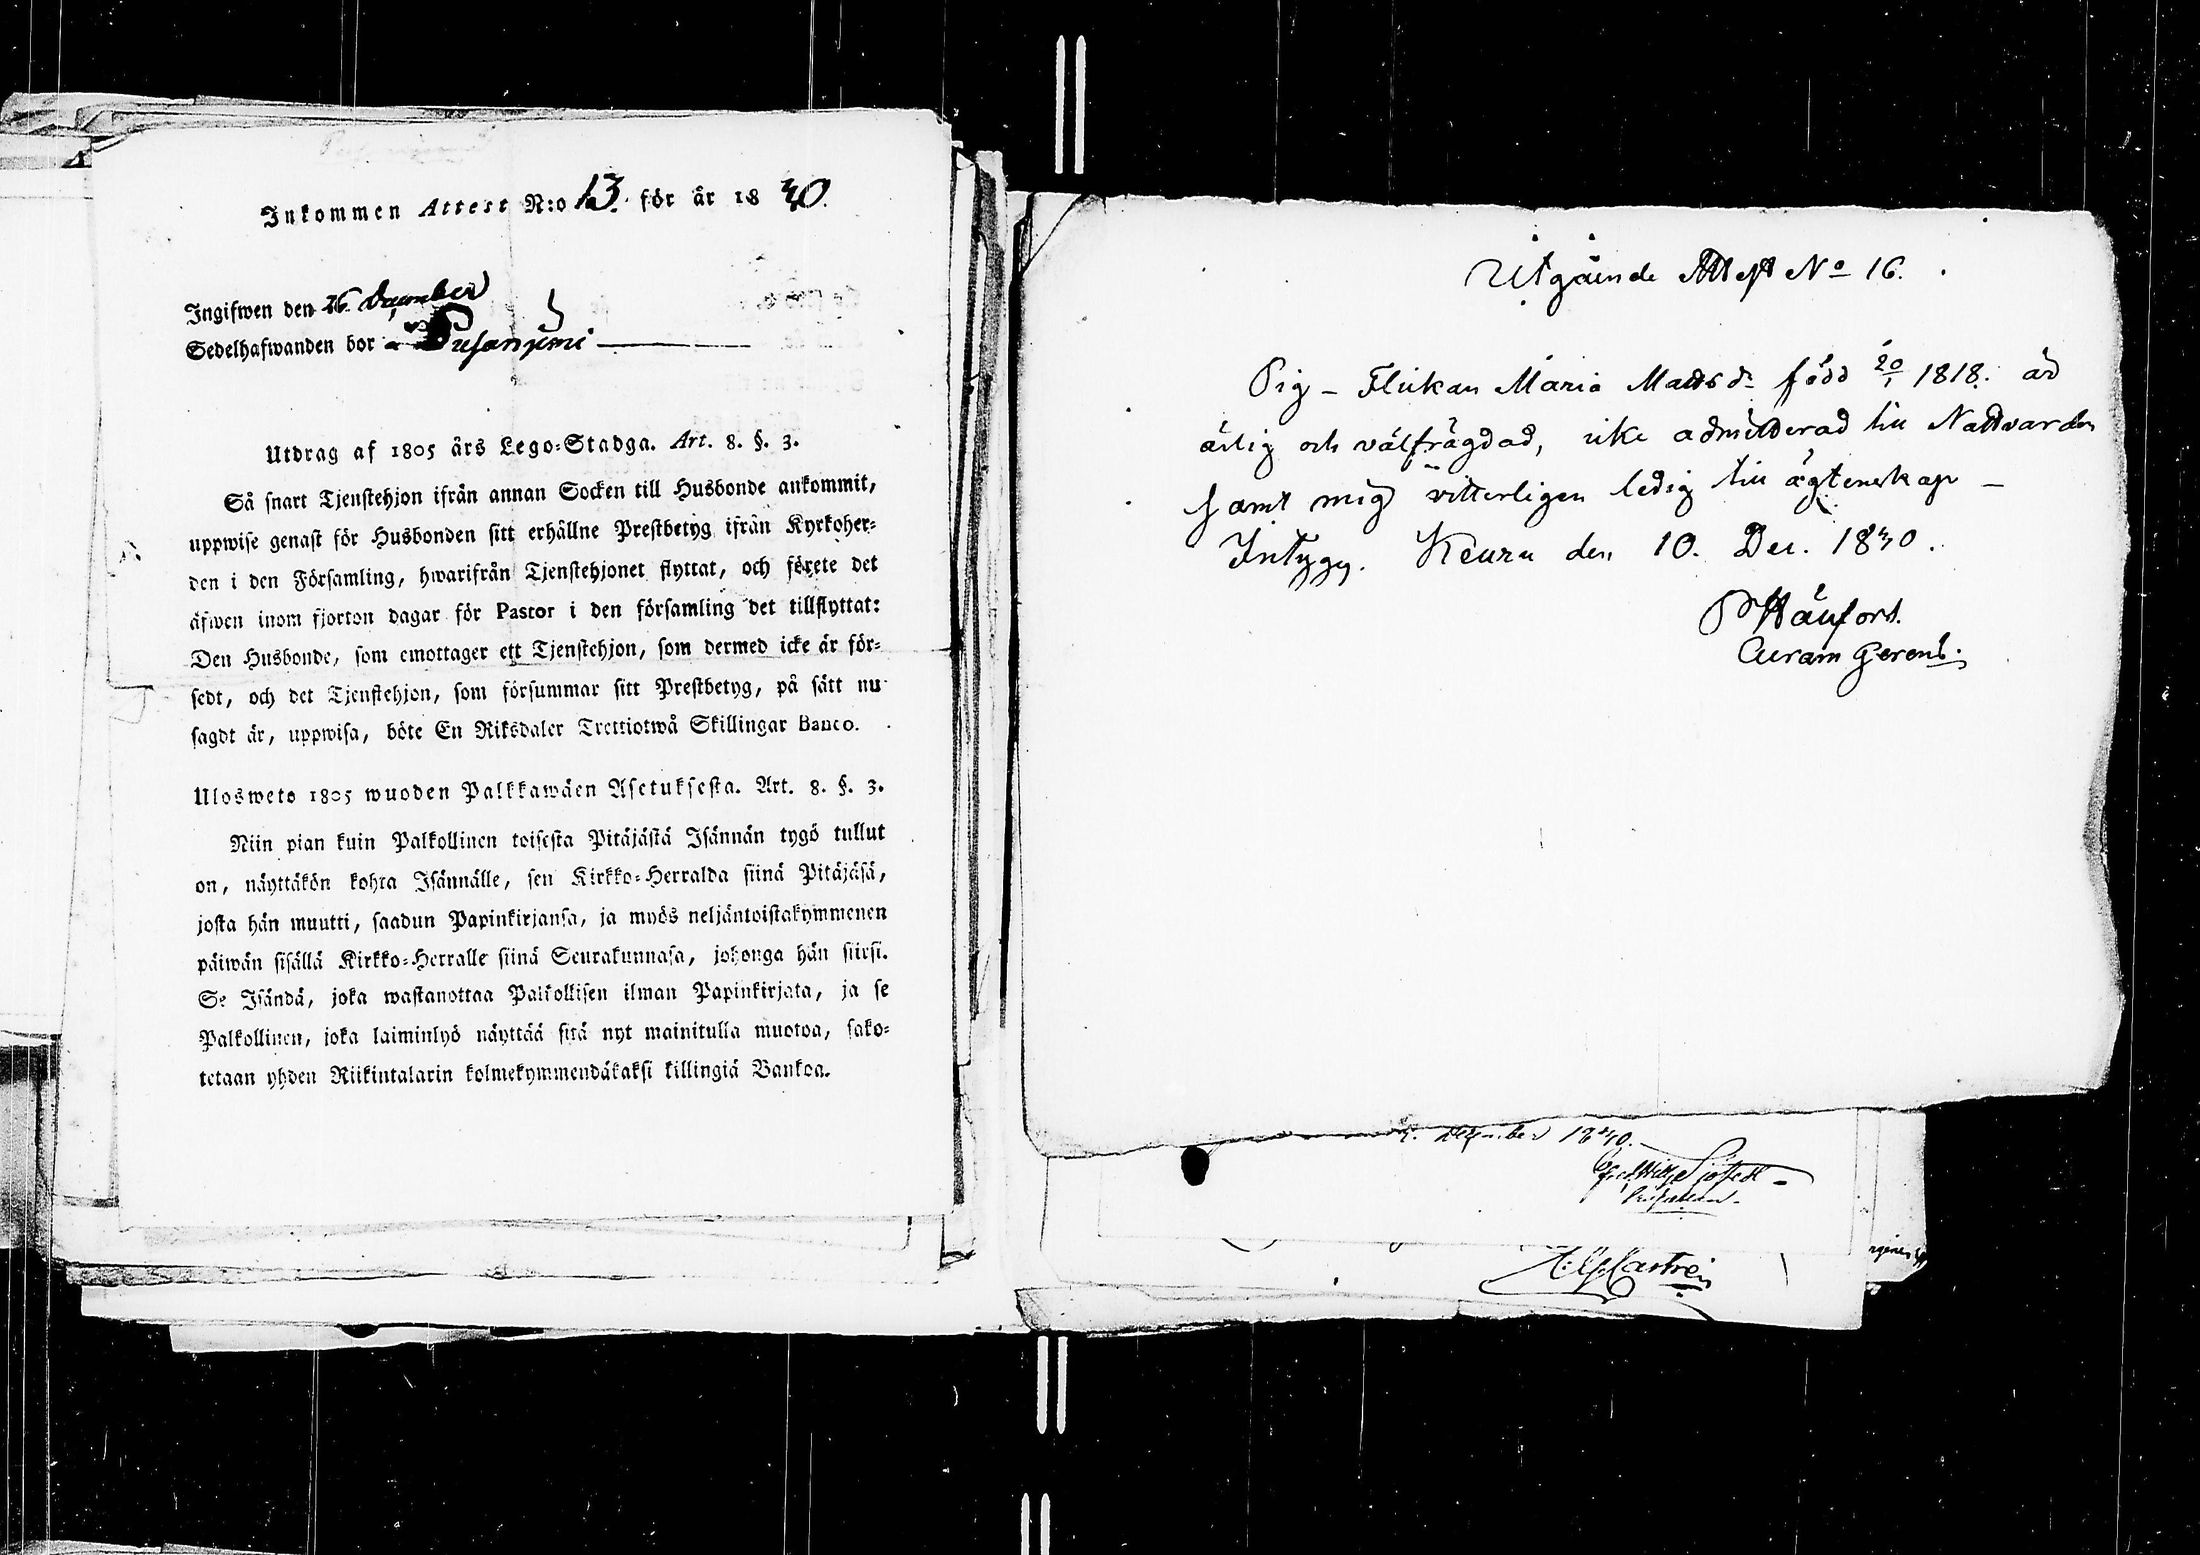 Inkommen Attest N:o 13. för år 1830.
Ingifwen den 26 December
Sedelhafwanden bor
Utdrag af 1805 års Lego-Stadga. Art. 8. §. 3.
Så snart Tjenstehjon ifrån annan Socken till Husbonde ankommit,
uppwise genast för Husbonden sitt erhållne Prestbetyg ifrån Kyrkoher-
den i den Församling, hwarifrån Tjenstehjonet flyttat, och förete det
äfwen inom fjorton dagar för Pastor i den församling det tillflyttat:
Den Husbonde, som emottager ett Tjenstehjon, som dermed icke är för-
sedt, och det Tjenstehjon, som försummar sitt Prestbetyg, på sätt nu
sagdt är, uppwisa, böte En Riksdaler Trettiotwå Skillingar Banco.
Ulosweto 1805 wuoden Palkkawäen Asetuksesta. Art. 8. §. 3.
Niin pian kuin Palkollinen toisesta Pitäjästä Isännän tygö tullut
on, näyttäkön kohta Isännälle, sen Kirkko-Herralda siinä Pitäjäsä,
josta hän muutti, saadun Papinkirjansa, ja myös neljäntoistakymmenen
päiwän sisällä Kirkko-Herralle siinä Seurakunnasa, johonga hän siirsi.
Se Isändä, joka wastanottaa Palkollisen ilman Papinkirjata, ja se
Palkollinen, joka laiminlyö näyttää sitä nyt mainitulla muotoa, sako-
tetaan yhden Riikintalarin kolmekymmendäkaksi killingiä Bankoa.
Utgående Attest No 16.
Pig-Flickan Maria Mattsdr född 20/1 1818. är
ärlig och välfrägdad, icke admitterad till Nattvarden
samt mig vitterligen ledig till ägtenskap –
Intygg. Keuru den 10. Dec. 1830.
Curam Gerens.
December 1830.
Castrén